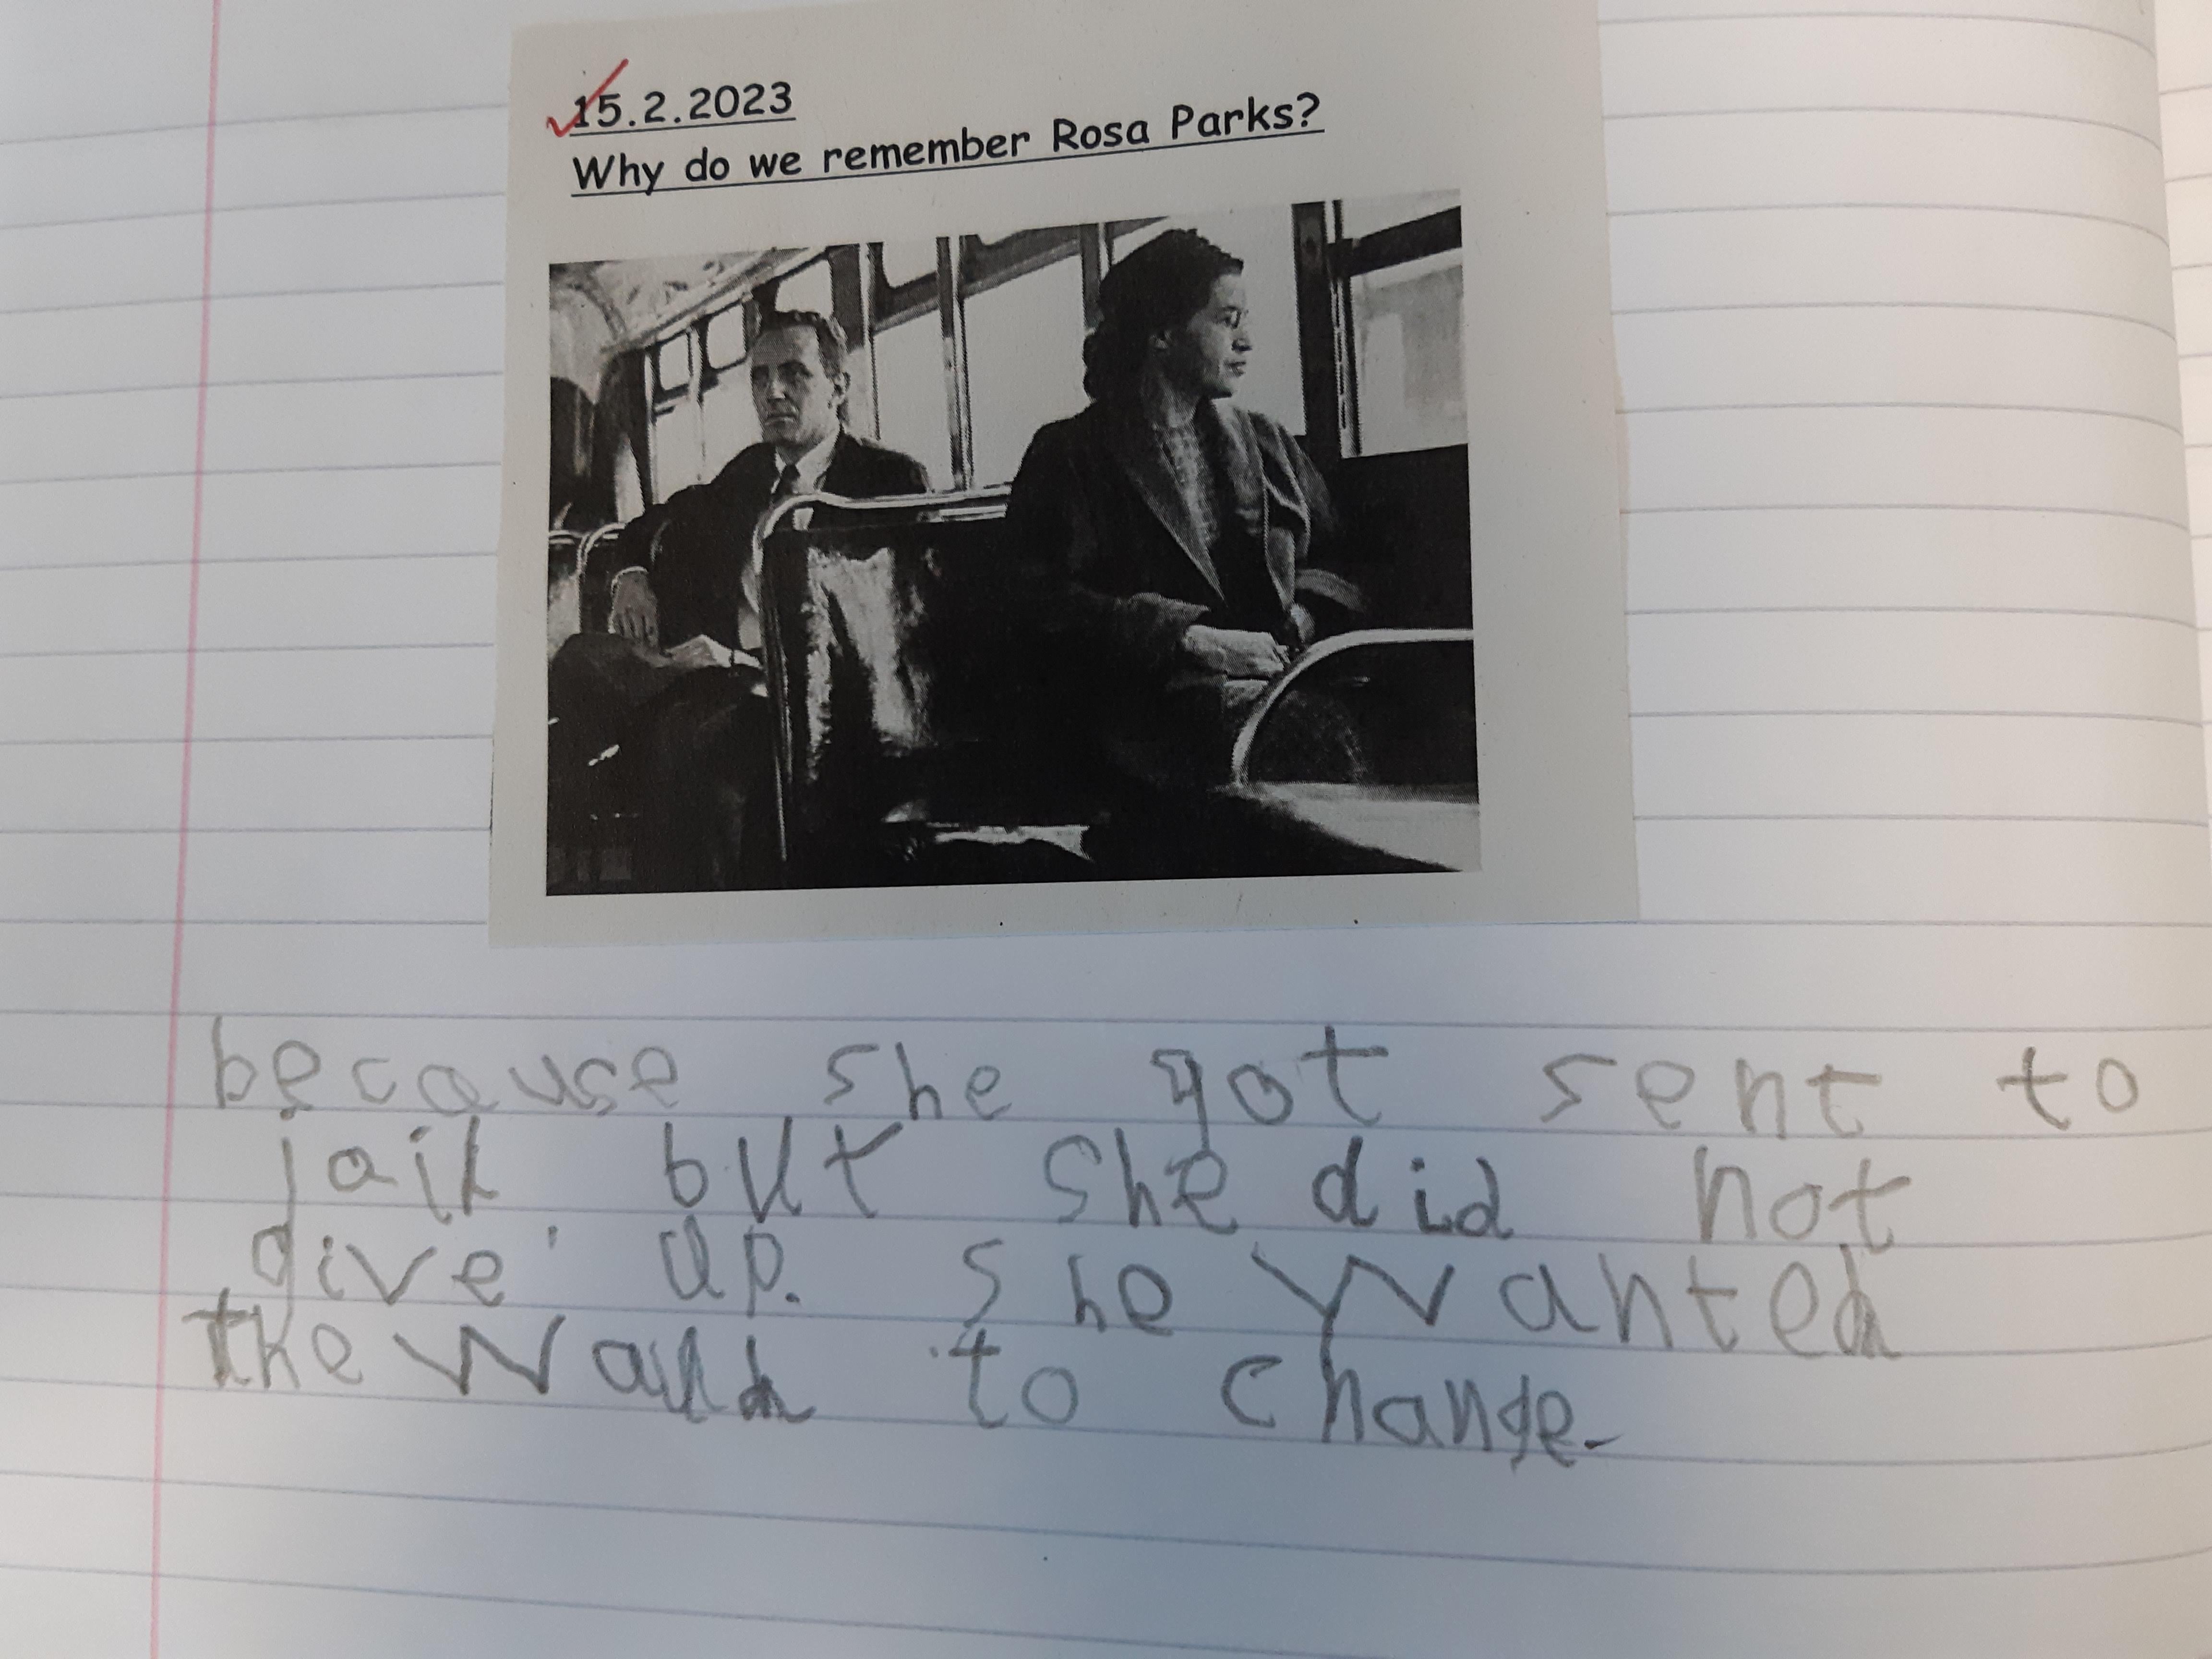 15.2.2023
Why do we remember Rosa Parks?
because she got sent to
jail but she did not
give up. she wanted
the to change.